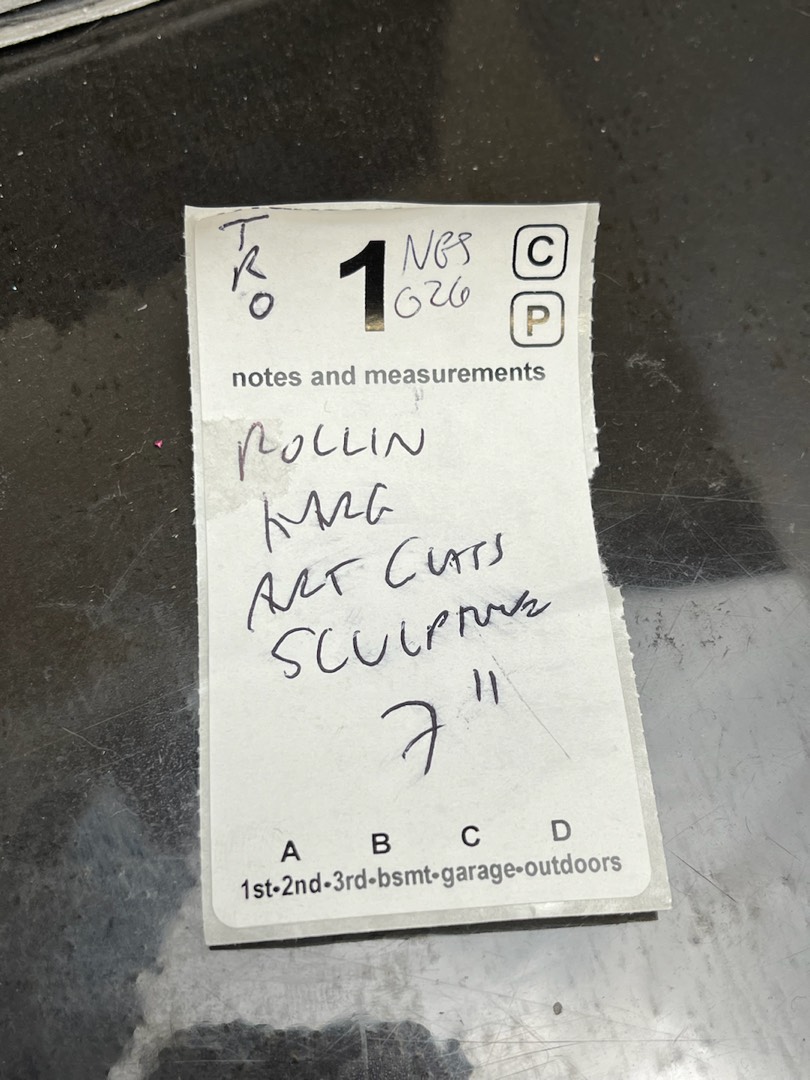 TRO
1
026
C
P
notes and measurements
ROLLIN
KARG
ART GLASS
SCULPTURE
7"
A B C D
1st•2nd•3rd•bsmt•garage•outdoors